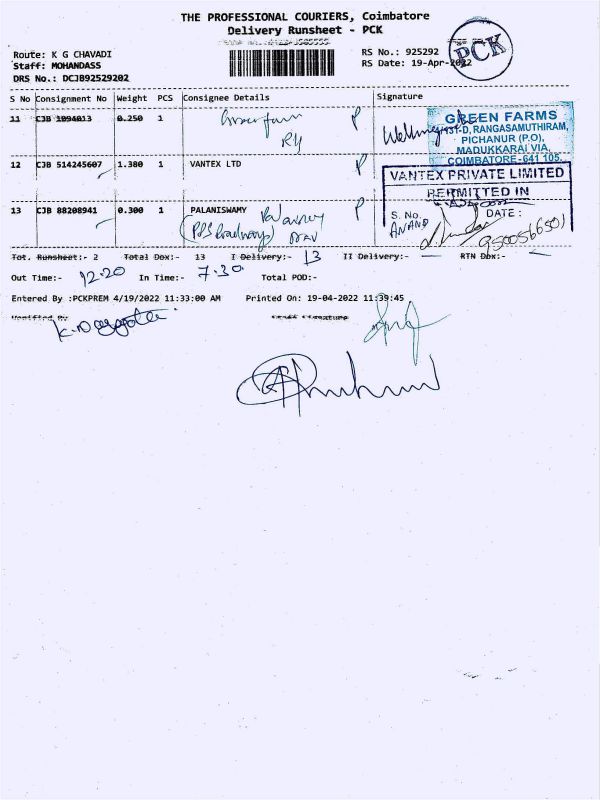 THE PROFESSIONAL COURIERS, Coimbatore
Delivery Runsheet - PCK
Route: K G CHAVADI
Staff: MOHANDASS
DRS No.: DCJB92529202
RS No.: 925292
RS Date: 19-Apr-2022
PCK
S No Consignment No Weight PCS Consignee Details Signature
11 CJB 1094013 0.250 1 P
GREEN FARMS
D, RANGASAMUTHIRAM,
PICHANUR (P.O),
MADUKKARAI VIA,
COIMBATORE-641 105.
12 CJB 514245607 1.380 1 VANTEX LTD P
VANTEX PRIVATE LIMITED
PERMITTED IN
13 CJB 88208941 0.300 1 PALANISWAMY P
S. No. DATE :
ANAND
9500566501
Tot. Runsheet:- 2 Total Dox:- 13 I Delivery:- 13 II Delivery:- — RTN Dox:- —
Out Time:- 12.20 In Time:- 7.30 Total POD:-
Entered By :PCKPREM 4/19/2022 11:33:00 AM Printed On: 19-04-2022 11:39:45
Verified By Staff Signature